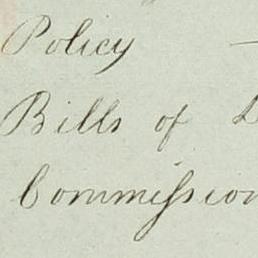 Policy —
Bills of
Commission